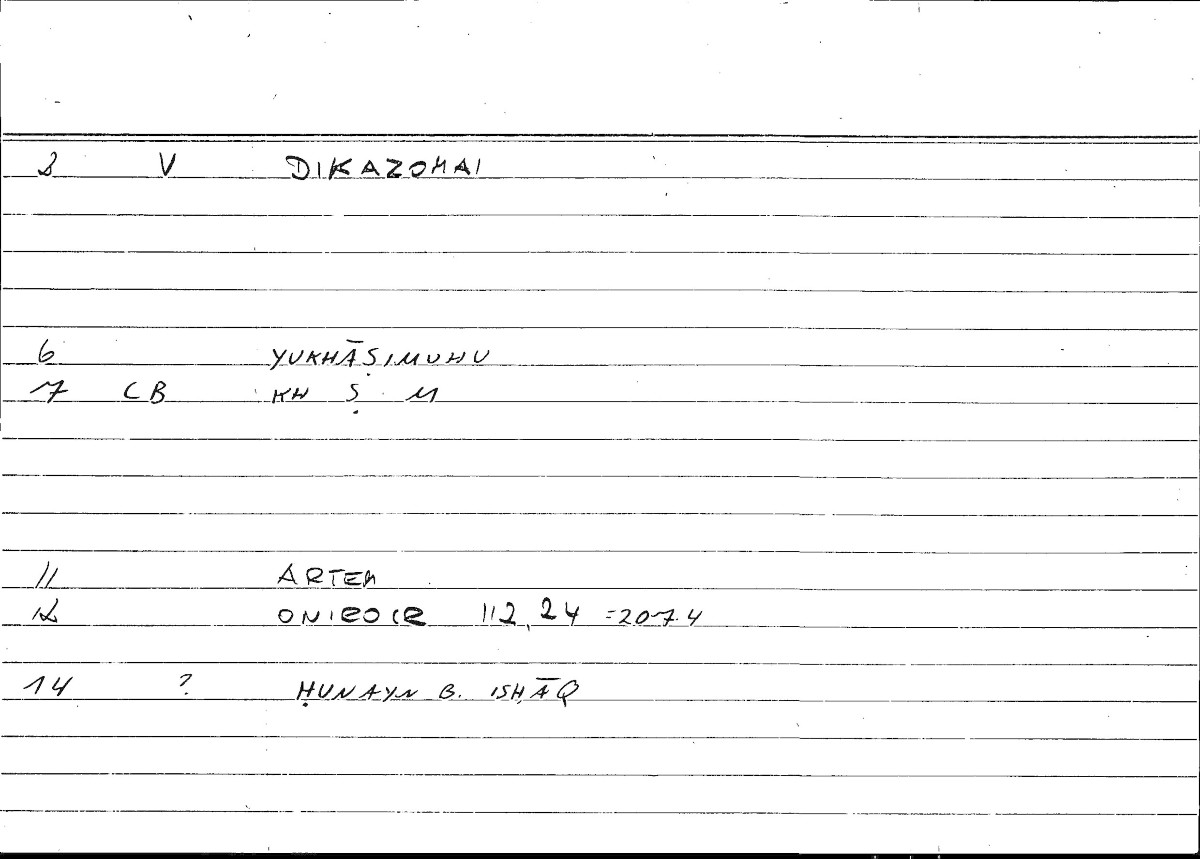 2 V DIKAZOMAI
6 YUKHĀṢIMUHU
7 CB KH Ṣ M
11 ARTEM
12 ONIROCR 112,24 =207.4
14 ? ḤUNAYN B. ISḤĀQ